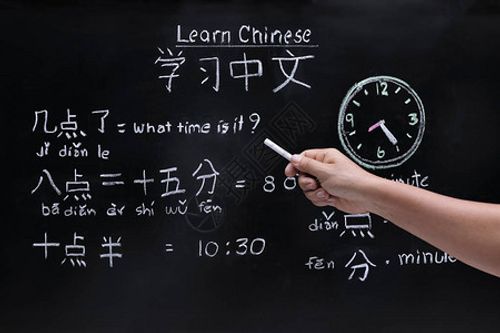 Learn Chinese
学习中文
几点了 = what time is it?
jǐ diǎn le
八点二十五分 = 8
minute
bā diǎn èr shí wǔ fēn
diǎn 点
十点半 = 10:30
fēn 分 · minute
12 1 2 3 4 5 6 7 8 9 10 11